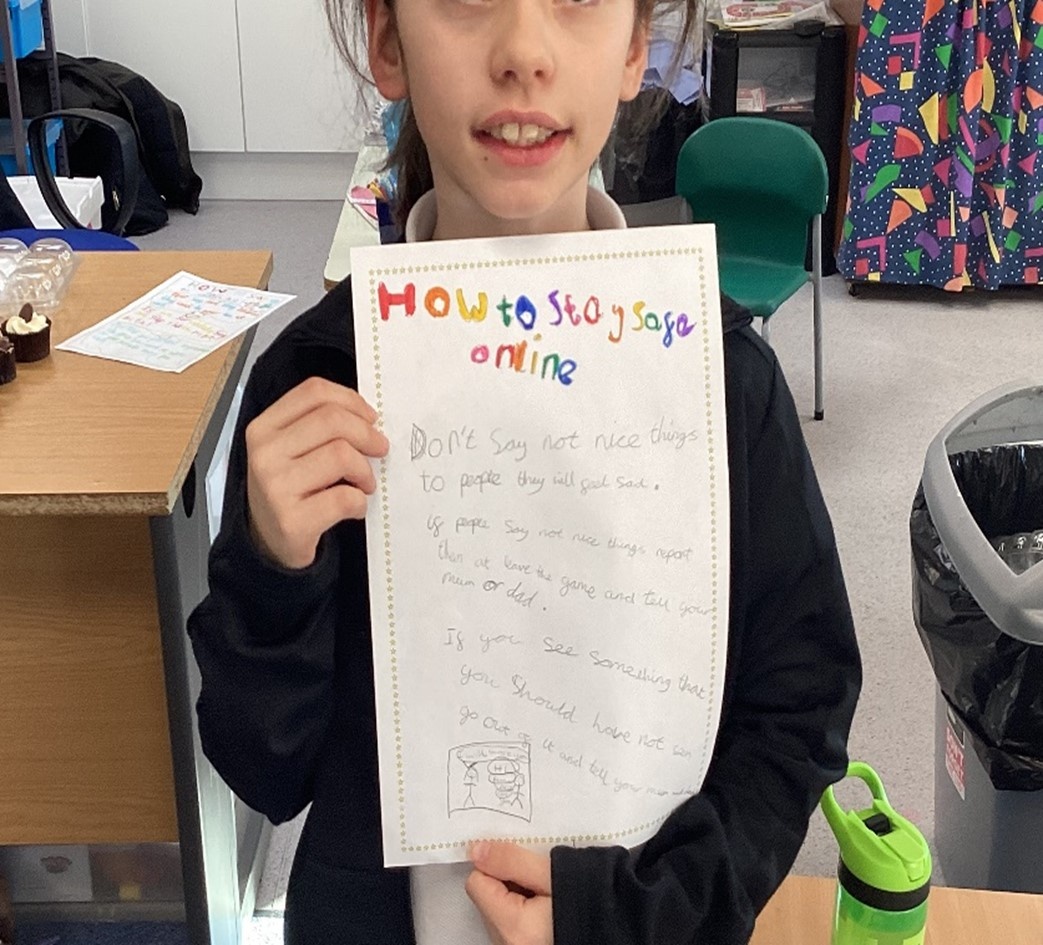 How to Stay Safe
online
Don't Say not nice things
to people they will feel sad.
if people Say not nice things report
them or leave the game and tell your
mum or dad.
If you See Something that
you Should have not seen
go out of it and tell your mum
HOW